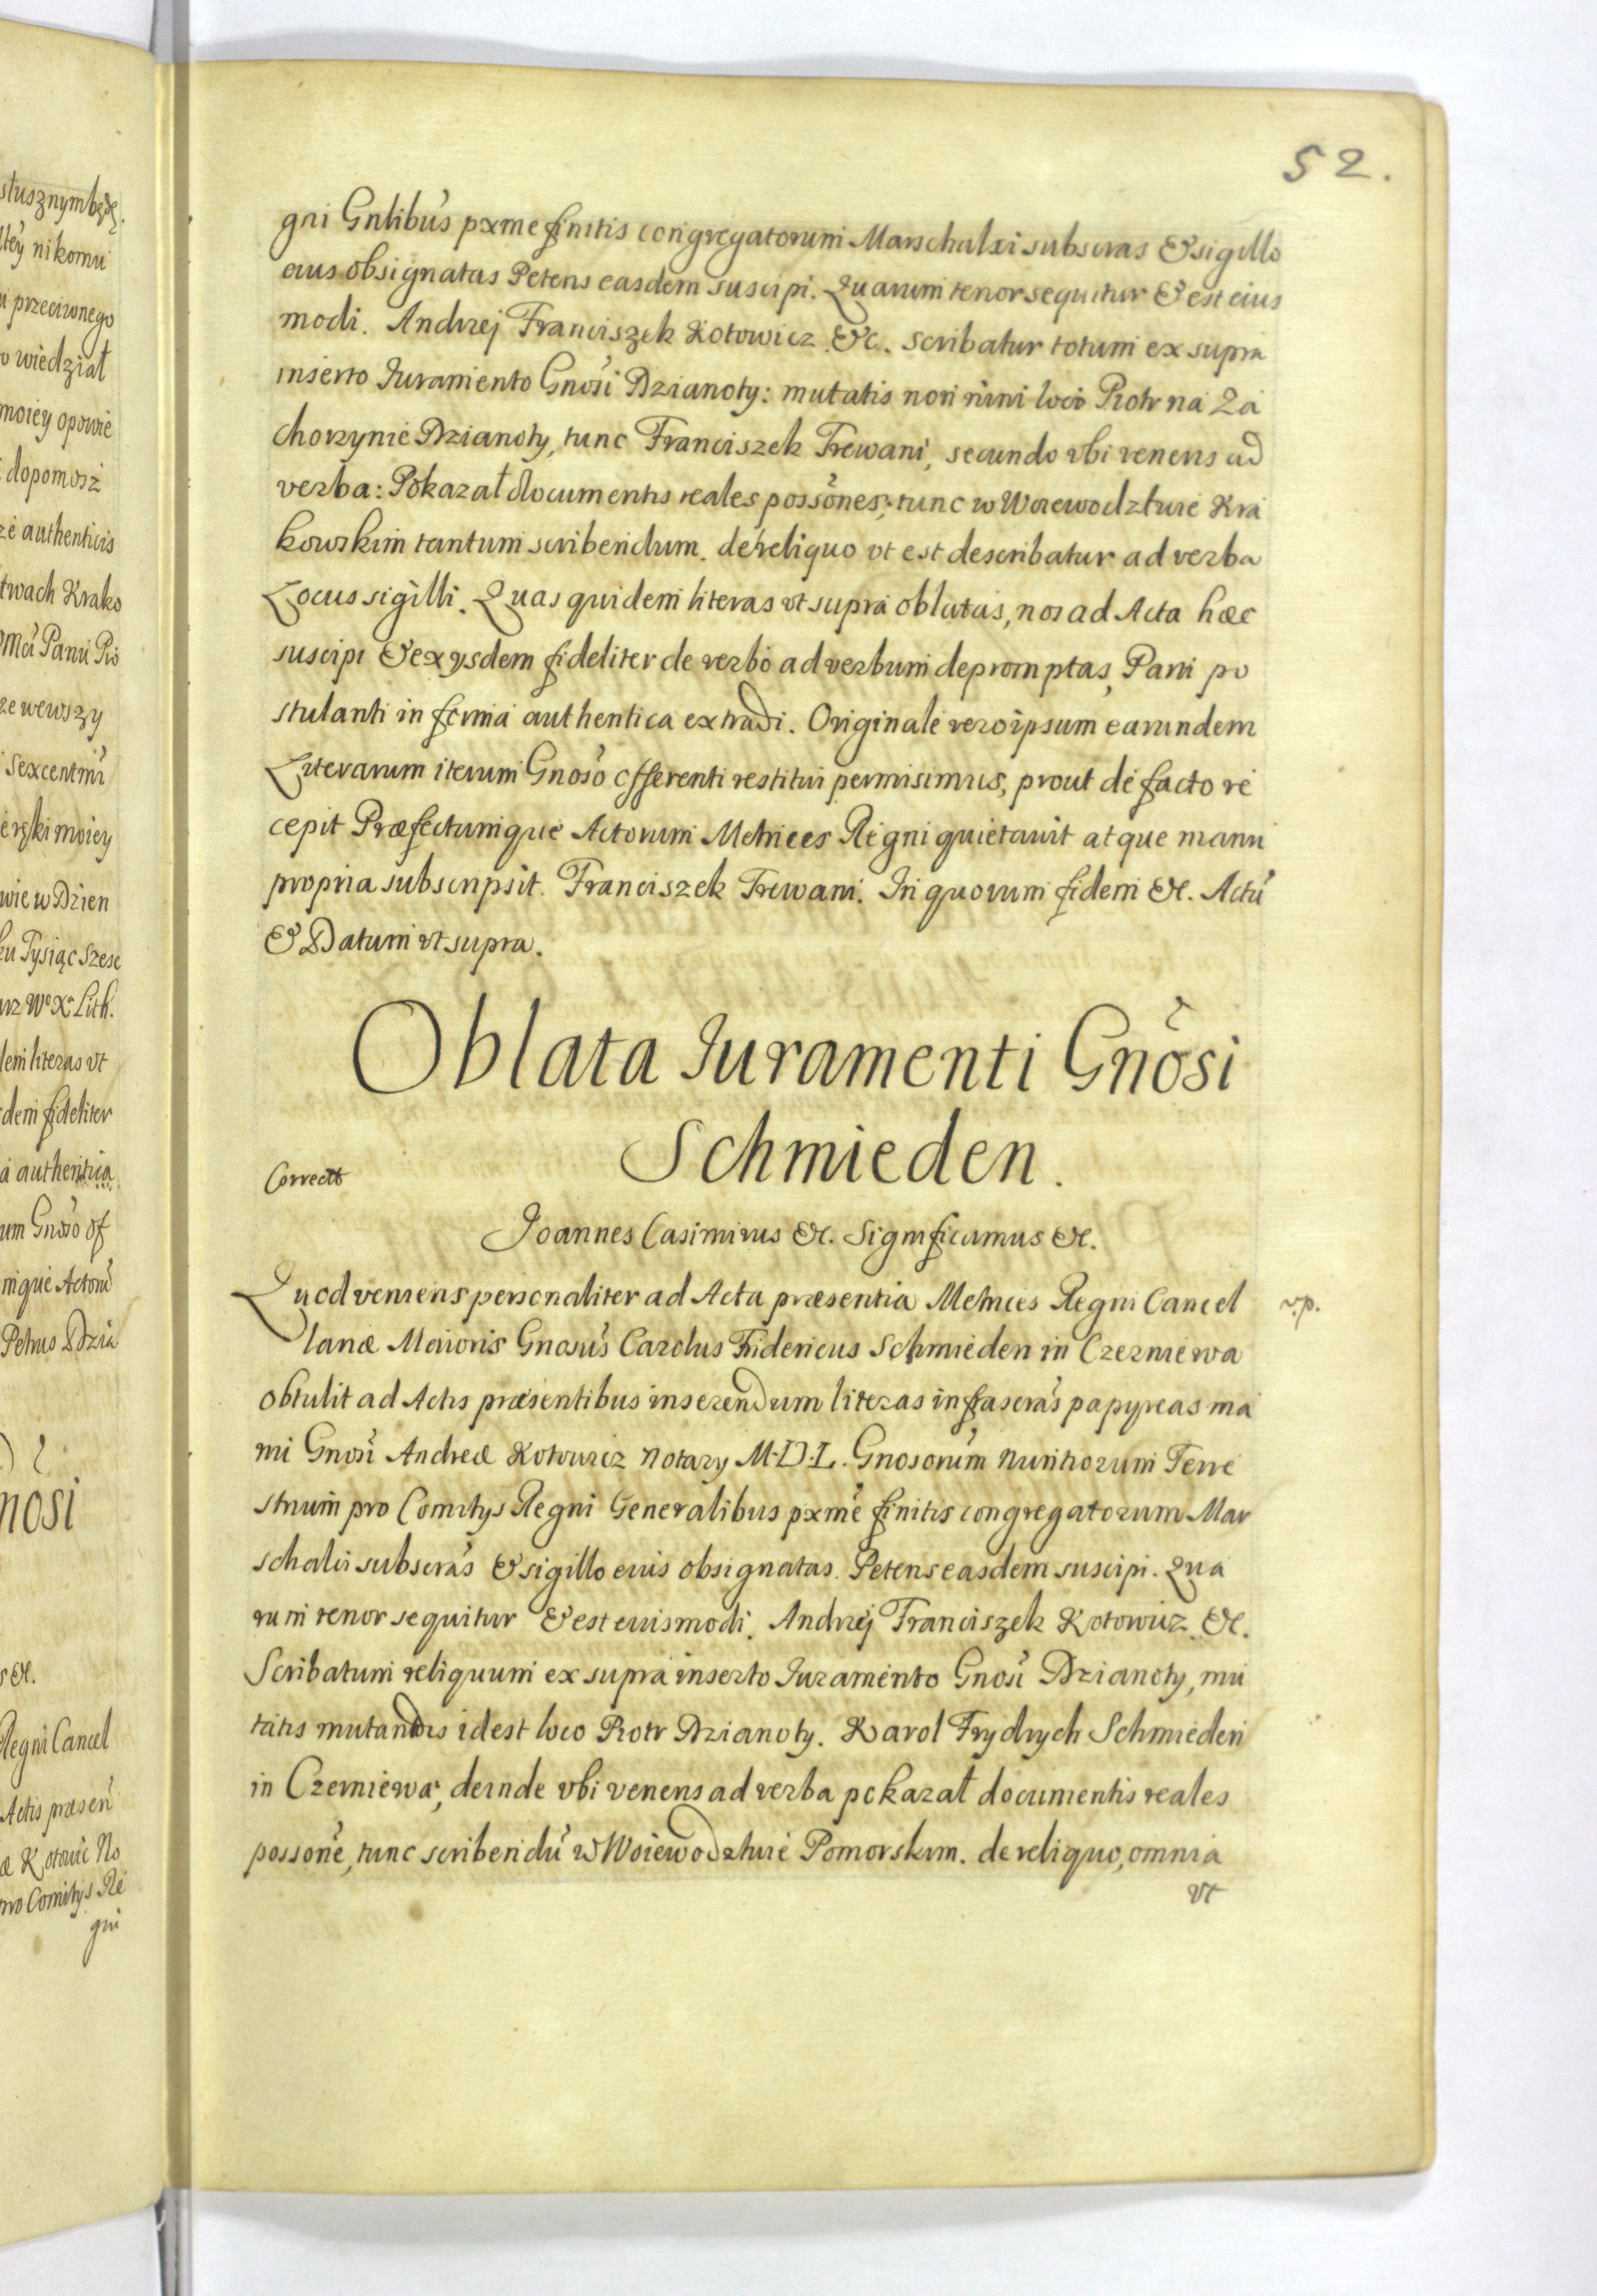 słusznym będę.
ltéy nikomu
u przeciwnego
o wiedział
moiey opowie
dopomosz
ze authenticis
twach Krako
Mci Panu Pio
ze wewszy
Sexcentmi
erski moiey
wie w Dzien
ku Tysiąc Szesc
rz Wo Xo Lith.
dem literas vt
dem fideliter
a authentica
um Gnoso of
mque Actoru
Petrus Dzia
nosi
s &c.
Regni Cancel
Actis praesen
æ Kotowic No
pro Comitys Re
gni
52.
gni Gnlibus pxme finitis congregatorum Marschalxi subscras & sigillo
eius obsignatas Petens easdem suscipi. Quarum tenor sequitur & est eius
modi. Andrzej Franciszek Kotowicz &c. scribatur totum ex supra
inserto Iuramento Gnosi Dzianoty: mutatis non nimi loco Piotr na Za
chorzynie Dzianoty, tunc Franciszek Trewani, secundo vbi veniens ad
verba: Pokazał documentis reales possones, tunc w Woiewodztwie Kra
kowskim tantum scribendum. de reliquo vt est describatur ad verba
Locus sigilli. Quas quidem literas vt supra oblatas, nos ad Acta hæc
suscipi & ex ijsdem fideliter de verbo ad verbum depromptas, Parti po
stulanti in forma authentica extradi. Originale vero ipsum earundem
Literarum iterum Gnoso offerenti restitui permisimus, prout de facto re
cepit Præfectumque Actorum Metrices Regni quietavit atque manu
propria subscripsit. Franciszek Trewani. In quorum fidem &c. Actu
& Datum vt supra.
Oblata Iuramenti Gnosi
Schmieden.
Correct
Joannes Casimirus &c. Significamus &c.
Quod veniens personaliter ad Acta præsentia Metrices Regni Cancel
v.p.
lariæ Maioris Gnosus Carolus Fridericus Schmieden in Czerniewa
obtulit ad Actis præsentibus inserendum literas infrascras papyreas ma
nu Gnosi Andreæ Kotowicz Notary M.D.L. Gnosorum Nuntiorum Terre
strium pro Comitys Regni Generalibus pxme finitis congregatorum Mar
schalci subscras & sigillo eius obsignatas. Petens easdem suscipi. Qua
rum tenor sequitur & est eiusmodi. Andrzej Franciszek Kotowicz &c.
Scribatum reliquum ex supra inserto Iuramento Gnosi Dzianoty, mu
tatis mutandis idest loco Piotr Dzianoty. Karol Frydrych Schmieden
in Czerniewa, deinde vbi venens ad verba pokazał documentis reales
possone, tunc scribendu w Woiewodztwie Pomorskim. de reliquo, omnia
vt